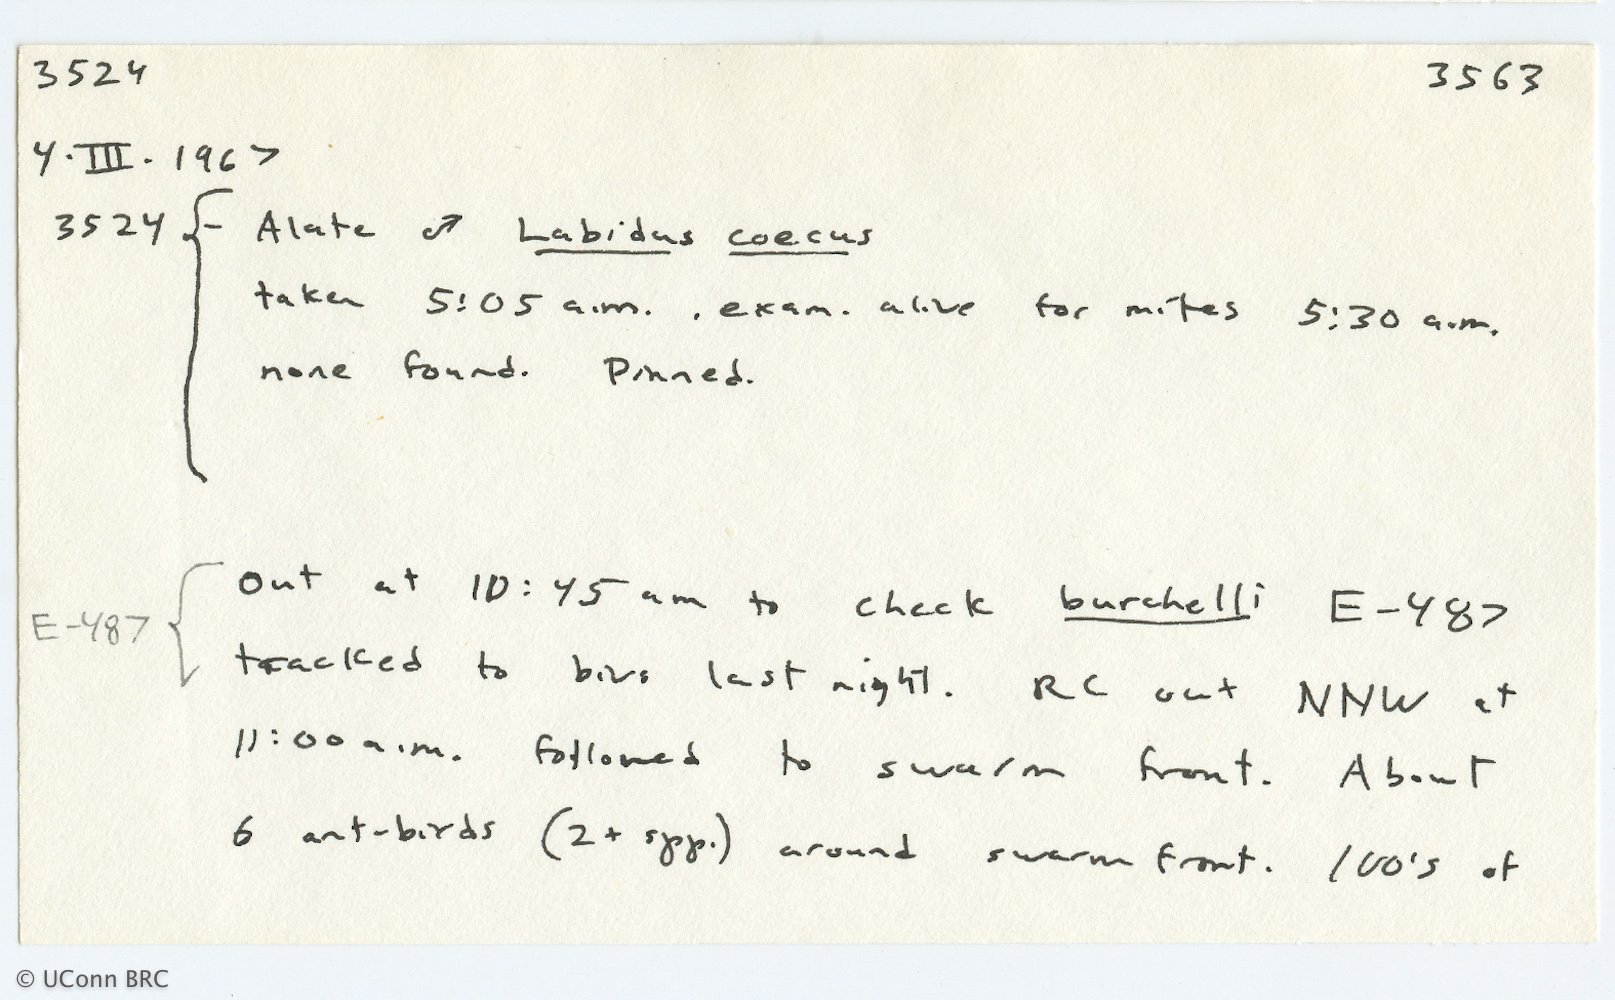 3524 3563
4.III.1967
3524 - Alate ♂ Labidus coecus
taken 5:05 a.m. , exam. alive for mites 5:30 a.m.
none found. Pinned.
out at 10:45 am to check burchelli E-487
E-487
tracked to bivo last night. RC out NNW at
11:00 a.m. Followed to swarm front. About
6 ant-birds (2+ spp.) around swarm front. 100's of
© UConn BRC